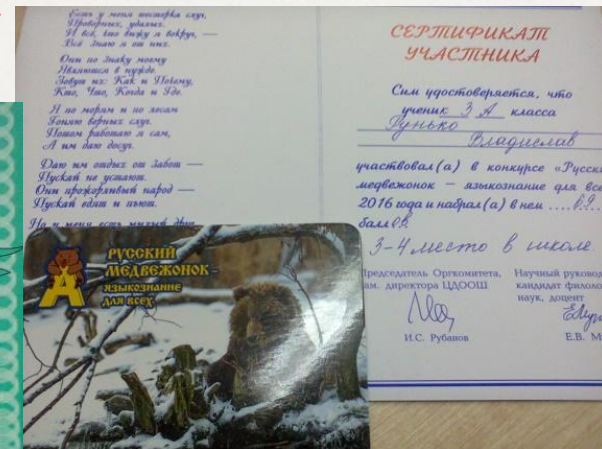 Есть у меня шестерка слуг,
Проворных, удалых.
И всё, что вижу я вокруг, —
Всё знаю я от них.
Они по знаку моему
Являются в нужде.
Зовут их: Как и Почему,
Кто, Что, Когда и Где.
Я по морям и по лесам
Гоняю верных слуг.
Потом работаю я сам,
А им даю досуг.
Даю им отдых от забот —
Пускай не устают.
Они прожорливый народ —
Пускай едят и пьют.
Но у меня есть милый друг
РУССКИЙ
МЕДВЕЖОНОК -
ЯЗЫКОЗНАНИЕ
ДЛЯ ВСЕХ
СЕРТИФИКАТ
УЧАСТНИКА
Сим удостоверяется, что
ученик 3 А класса
Гунько
Владислав
участвовал(а) в конкурсе «Русски
медвежонок — языкознание для все
2016 года и набрал(а) в нем
балл
3-4 место в школе
Председатель Оргкомитета,
зам. директора ЦДООШ
Научный руковод
кандидат филоло
наук, доцент
И.С. Рубанов
Е.В. М